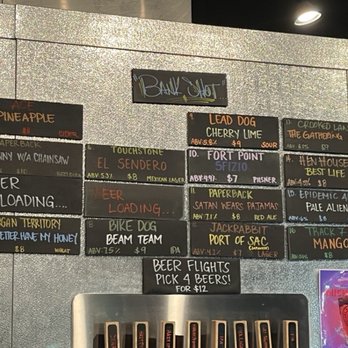 "BANK SHOT"
ACE
PINEAPPLE
$8 CIDER
PAPERBACK
NNY W/A CHAINSAW
$8
ER
LOADING....
GAN TERRITORY
BETTER HAVE MY HONEY
$8 WHEAT
TOUCHSTONE
EL SENDERO
ABV: 5.3% $8 MEXICAN LAGER
BEER
LOADING....
BIKE DOG
BEAM TEAM
ABV: 7.5% $9 IPA
LEAD DOG
CHERRY LIME
$9 SOUR
10. FORT POINT
SFIZIO
ABV: 4.9% $7 PILSNER
PAPERBACK
SATAN WEARS PAJAMAS
ABV: 7.1% $8 RED ALE
JACKRABBIT
PORT OF SAC
ABV: 4.3% $7 LAGER
CROOKED LAN
THE GATHERING
HENHOUSE
BEST LIFE
$8
EPIDEMIC A
PALE ALIEN
$8
TRACK 7
MANGO
$8
BEER FLIGHTS
PICK 4 BEERS!
FOR $12